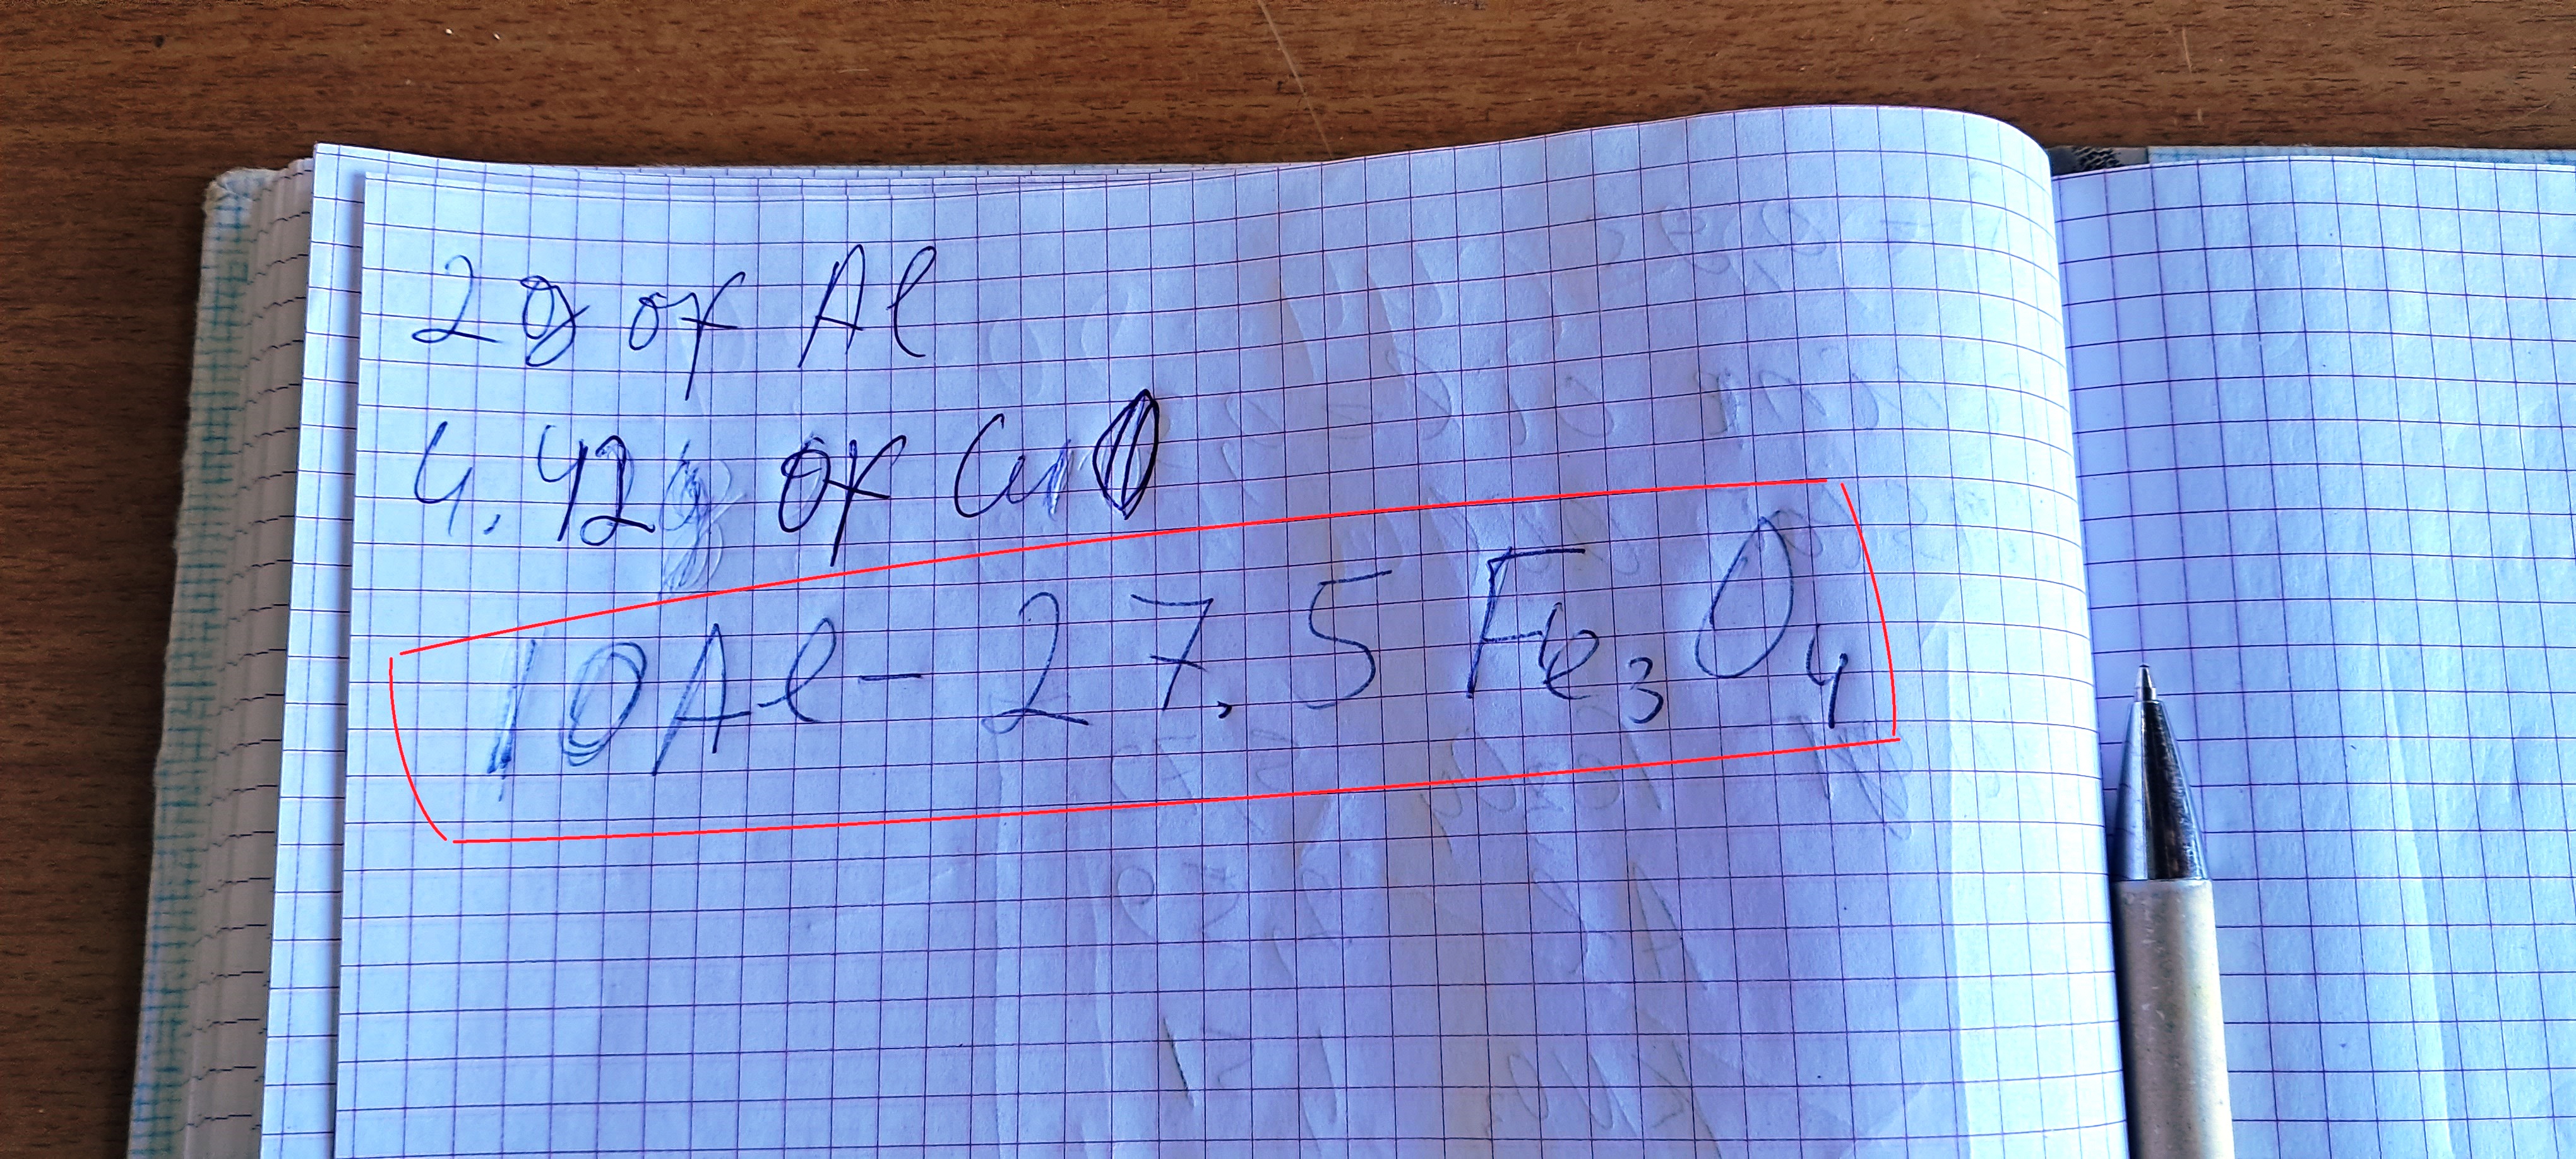 2g of Al
4,42g of CuO
10Al - 27,5 Fe₃O₄